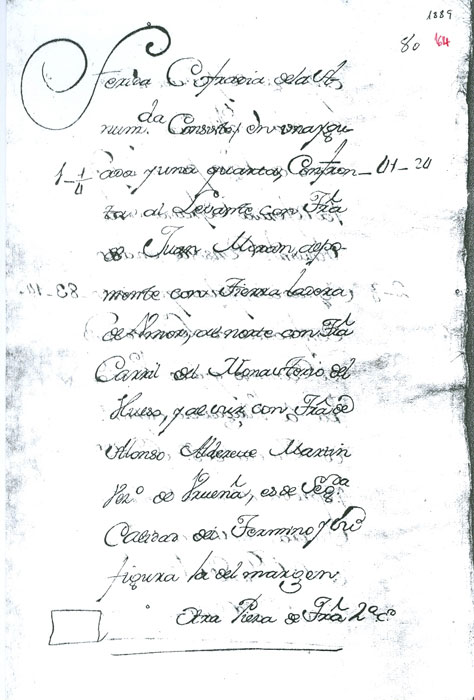 1889
80 64
ferida Cofradia de la Vt,
num. da Consiste, en una fgu
1_1/4 ada y una quarta, Confron_ 41-24
ta al Levante con Tr̃a
de Juan Moran, al po
mente con Tierra
de al norte con Tr̃a
Carril del Monasterio del
Hueso, y al sur con Tr̃a de
Alonso Alderete Martin
Vez.º de Prueña, es de Seg.da
Calidad del Termino y su
figura la del margen,
Otra Pieza de Tr̃a 2ª c.